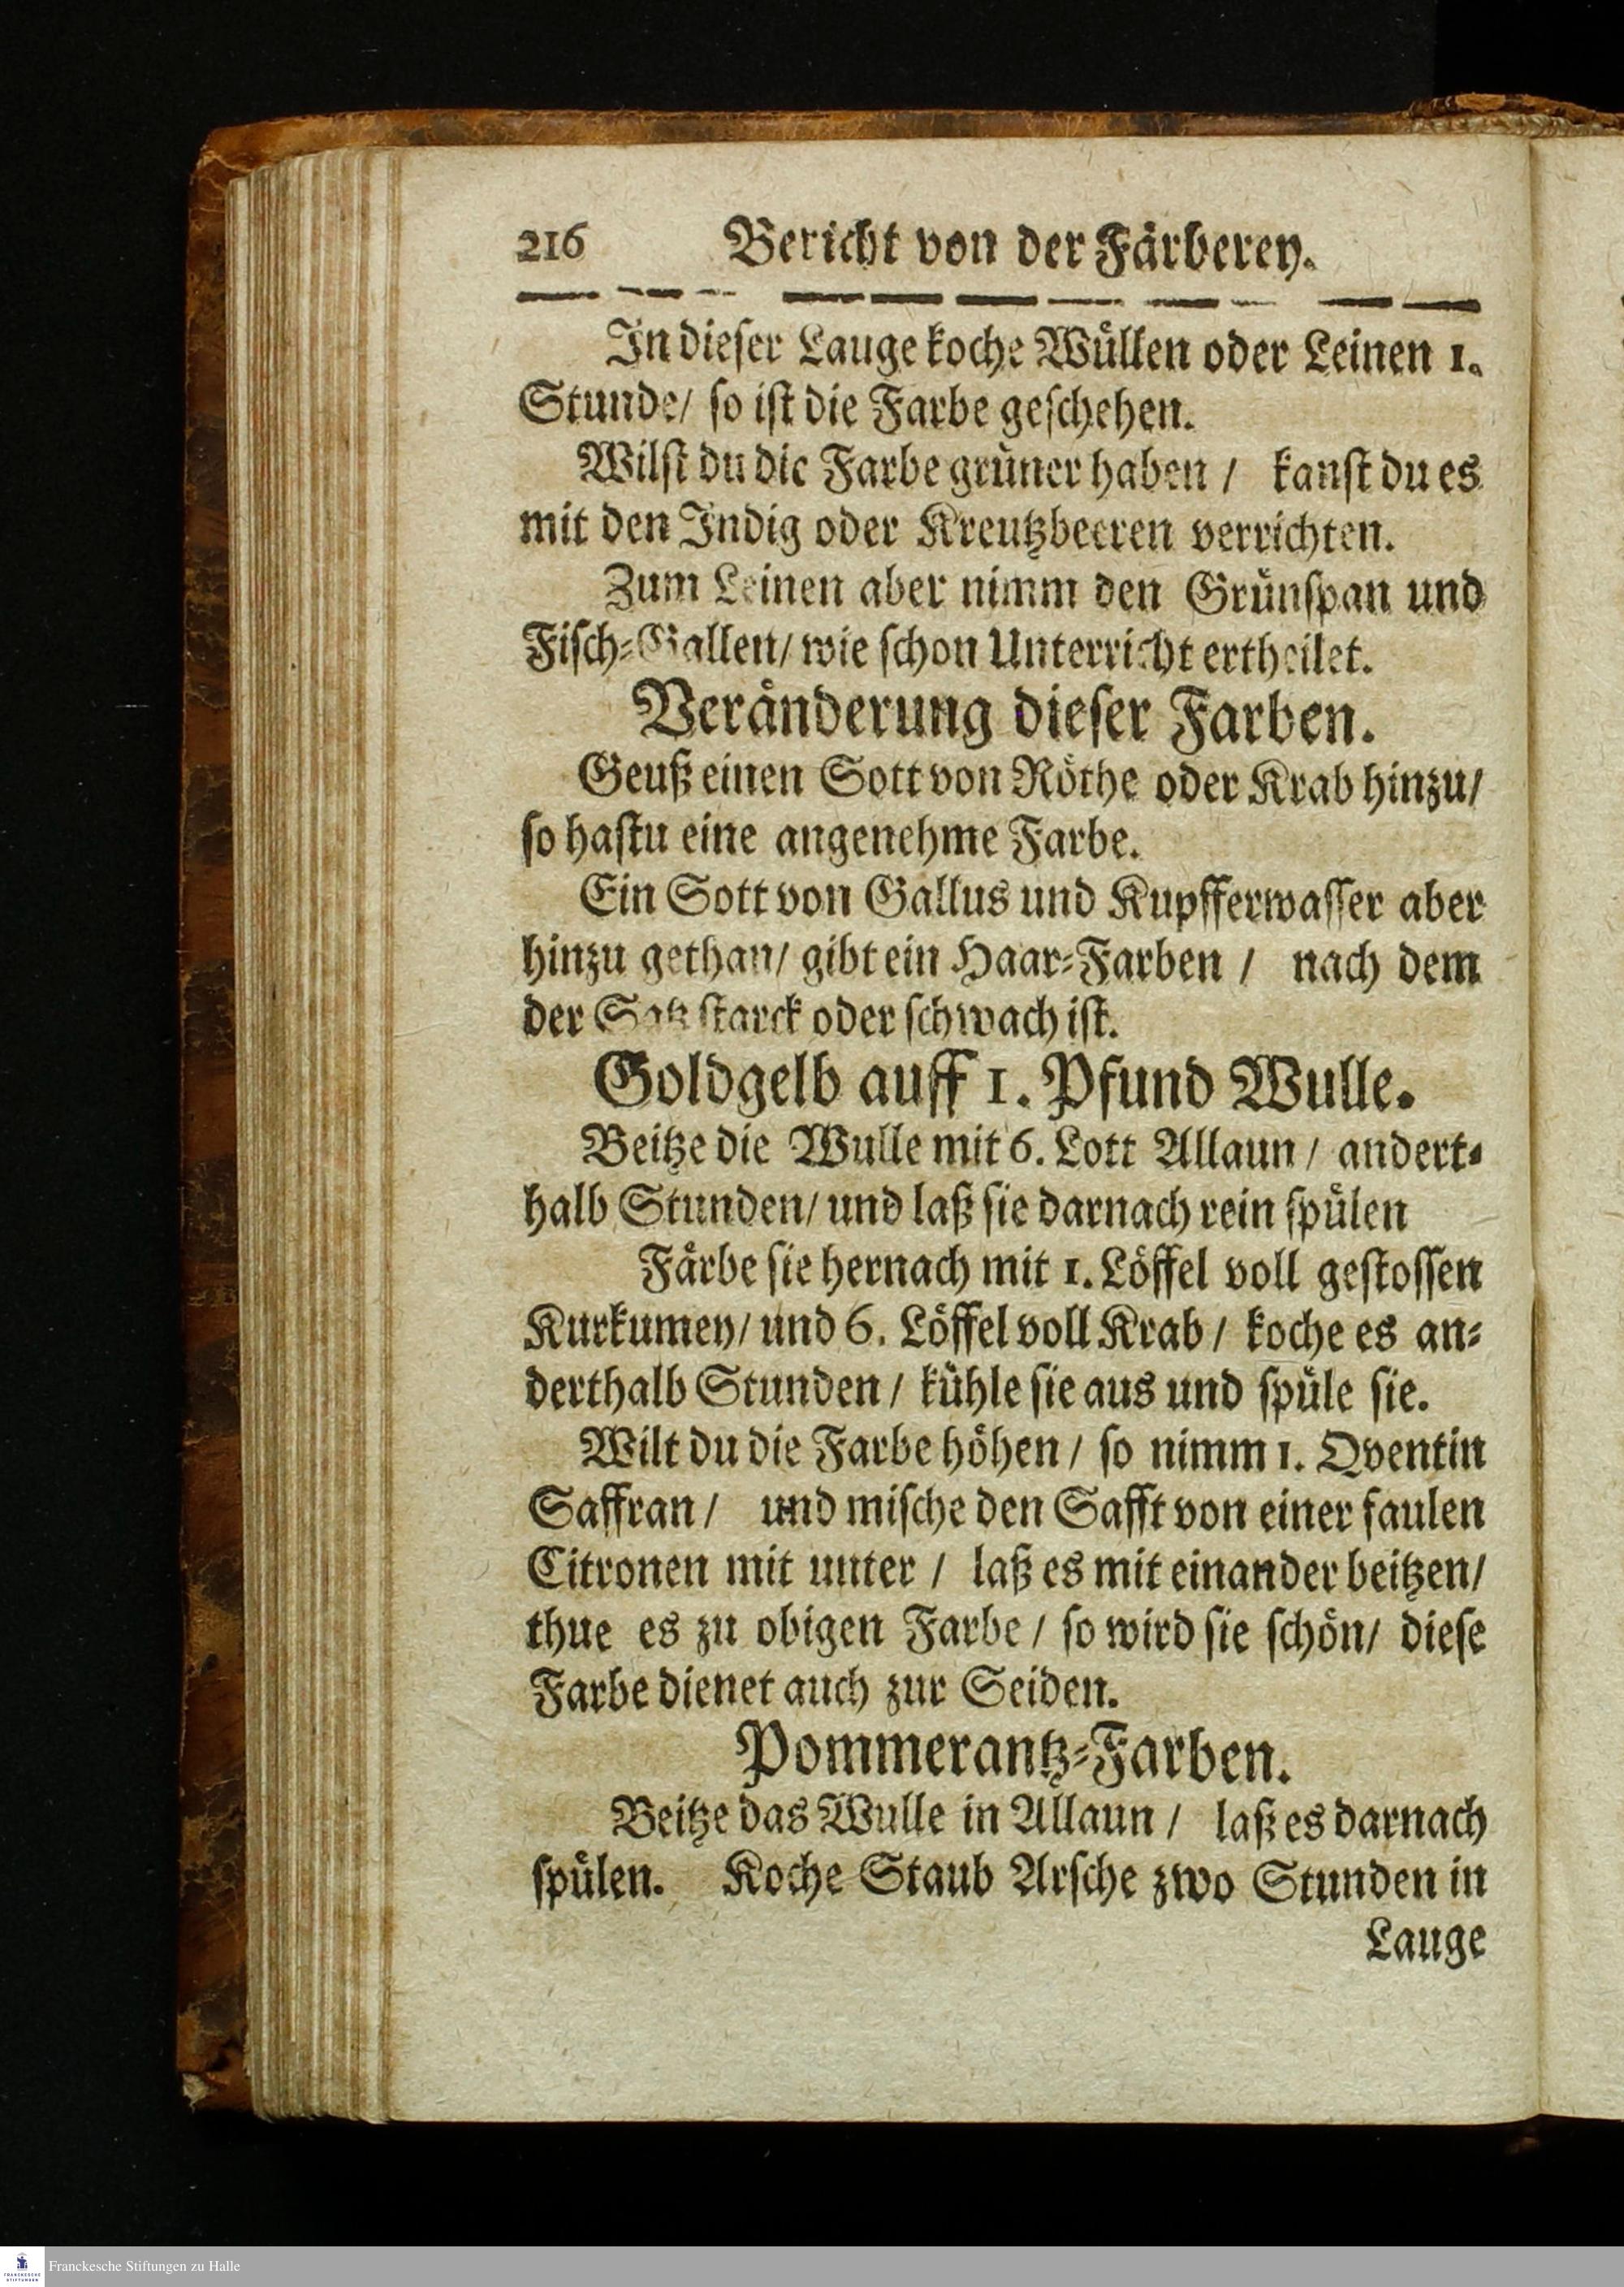 216 Bericht von der Färberey.
In dieser Lauge koche Wüllen oder Leinen 1.
Stunde/ so ist die Farbe geschehen.
Wilst du die Farbe grüner haben / kanst du es
mit den Indig oder Kreutzbeeren verrichten.
Zum Leinen aber nimm den Grünspan und
Fisch-Gallen/ wie schon Unterricht ertheilet.
Veränderung dieser Farben.
Geuß einen Sott von Röthe oder Krab hinzu/
so hastu eine angenehme Farbe.
Ein Sott von Gallus und Kupfferwasser aber
hinzu gethan/ gibt ein Haar-Farben / nach dem
der Satz starck oder schwach ist.
Goldgelb auff 1. Pfund Wulle.
Beitze die Wulle mit 6. Lott Allaun / andert-
halb Stunden/ und laß sie darnach rein spülen
Färbe sie hernach mit 1. Löffel voll gestossen
Kurkumey/ und 6. Löffel voll Krab / koche es an-
derthalb Stunden / kühle sie aus und spüle sie.
Wilt du die Farbe höhen / so nimm 1. Qventin
Saffran / und mische den Safft von einer faulen
Citronen mit unter / laß es mit einander beitzen/
thue es zu obigen Farbe / so wird sie schön/ diese
Farbe dienet auch zur Seiden.
Pommerantz-Farben.
Beitze das Wulle in Allaun / laß es darnach
spülen. Koche Staub Arsche zwo Stunden in
Lauge
Franckesche Stiftungen zu Halle